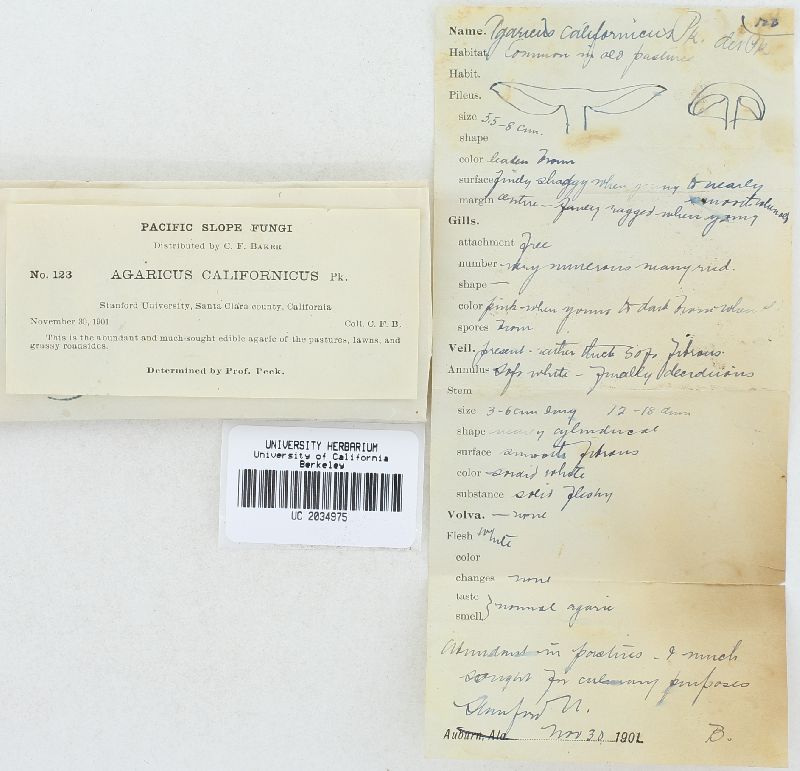 PACIFIC SLOPE FUNGI
Distributed by C. F. BAKER
No. 123 AGARICUS CALIFORNICUS Pk.
Stanford University, Santa Clara county, California
November 30, 1901 Coll. C. F. B.
This is the abundant and much-sought edible agaric of the pastures, lawns, and
grassy roadsides.
Determined by Prof. Peck.
UNIVERSITY HERBARIUM
University of California
Berkeley
UC 2034975
Name. Agaricus californicus Pk. det Pk
Habitat. Common in old pastures
Habit.
Pileus.
size 5.5-8 cm.
shape
color leaden brown
surface finely shaggy when young to nearly
smooth when old
margin entire - finely ragged when young
Gills.
attachment free
number - very numerous many rud.
shape —
color pink when young to dark brown when
spores brown
Veil. present - rather thick soft fibrous
Annulus soft white - finally deciduous
Stem
size 3-6 cm long 12-18
shape nearly cylindrical
surface smooth fibrous
color sordid white
substance solid fleshy
Volva. — none
Flesh white
color
changes none
taste
smell. } normal agaric
Abundant in pastures - & much
sought for culinary purposes
Stanford U.
Auburn, Ala Nov 30 1901 B.